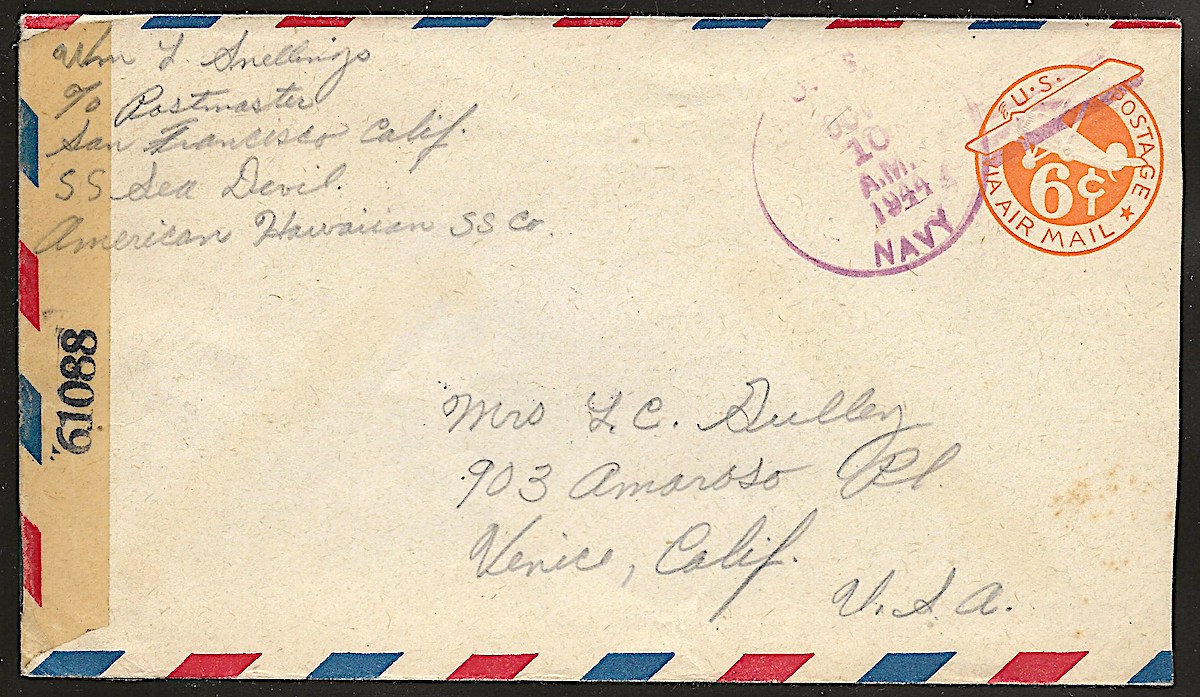 Wm L. Snellings
c/o Postmaster
San Francisco Calif.
SS Sea Devil.
American Hawaiian SS Co.
61088
10
A.M.
1944
NAVY
U.S. POSTAGE
6¢
VIA AIR MAIL
Mrs L.C. Gulley
903 Amoroso Pl.
Venice, Calif.
U.S.A.